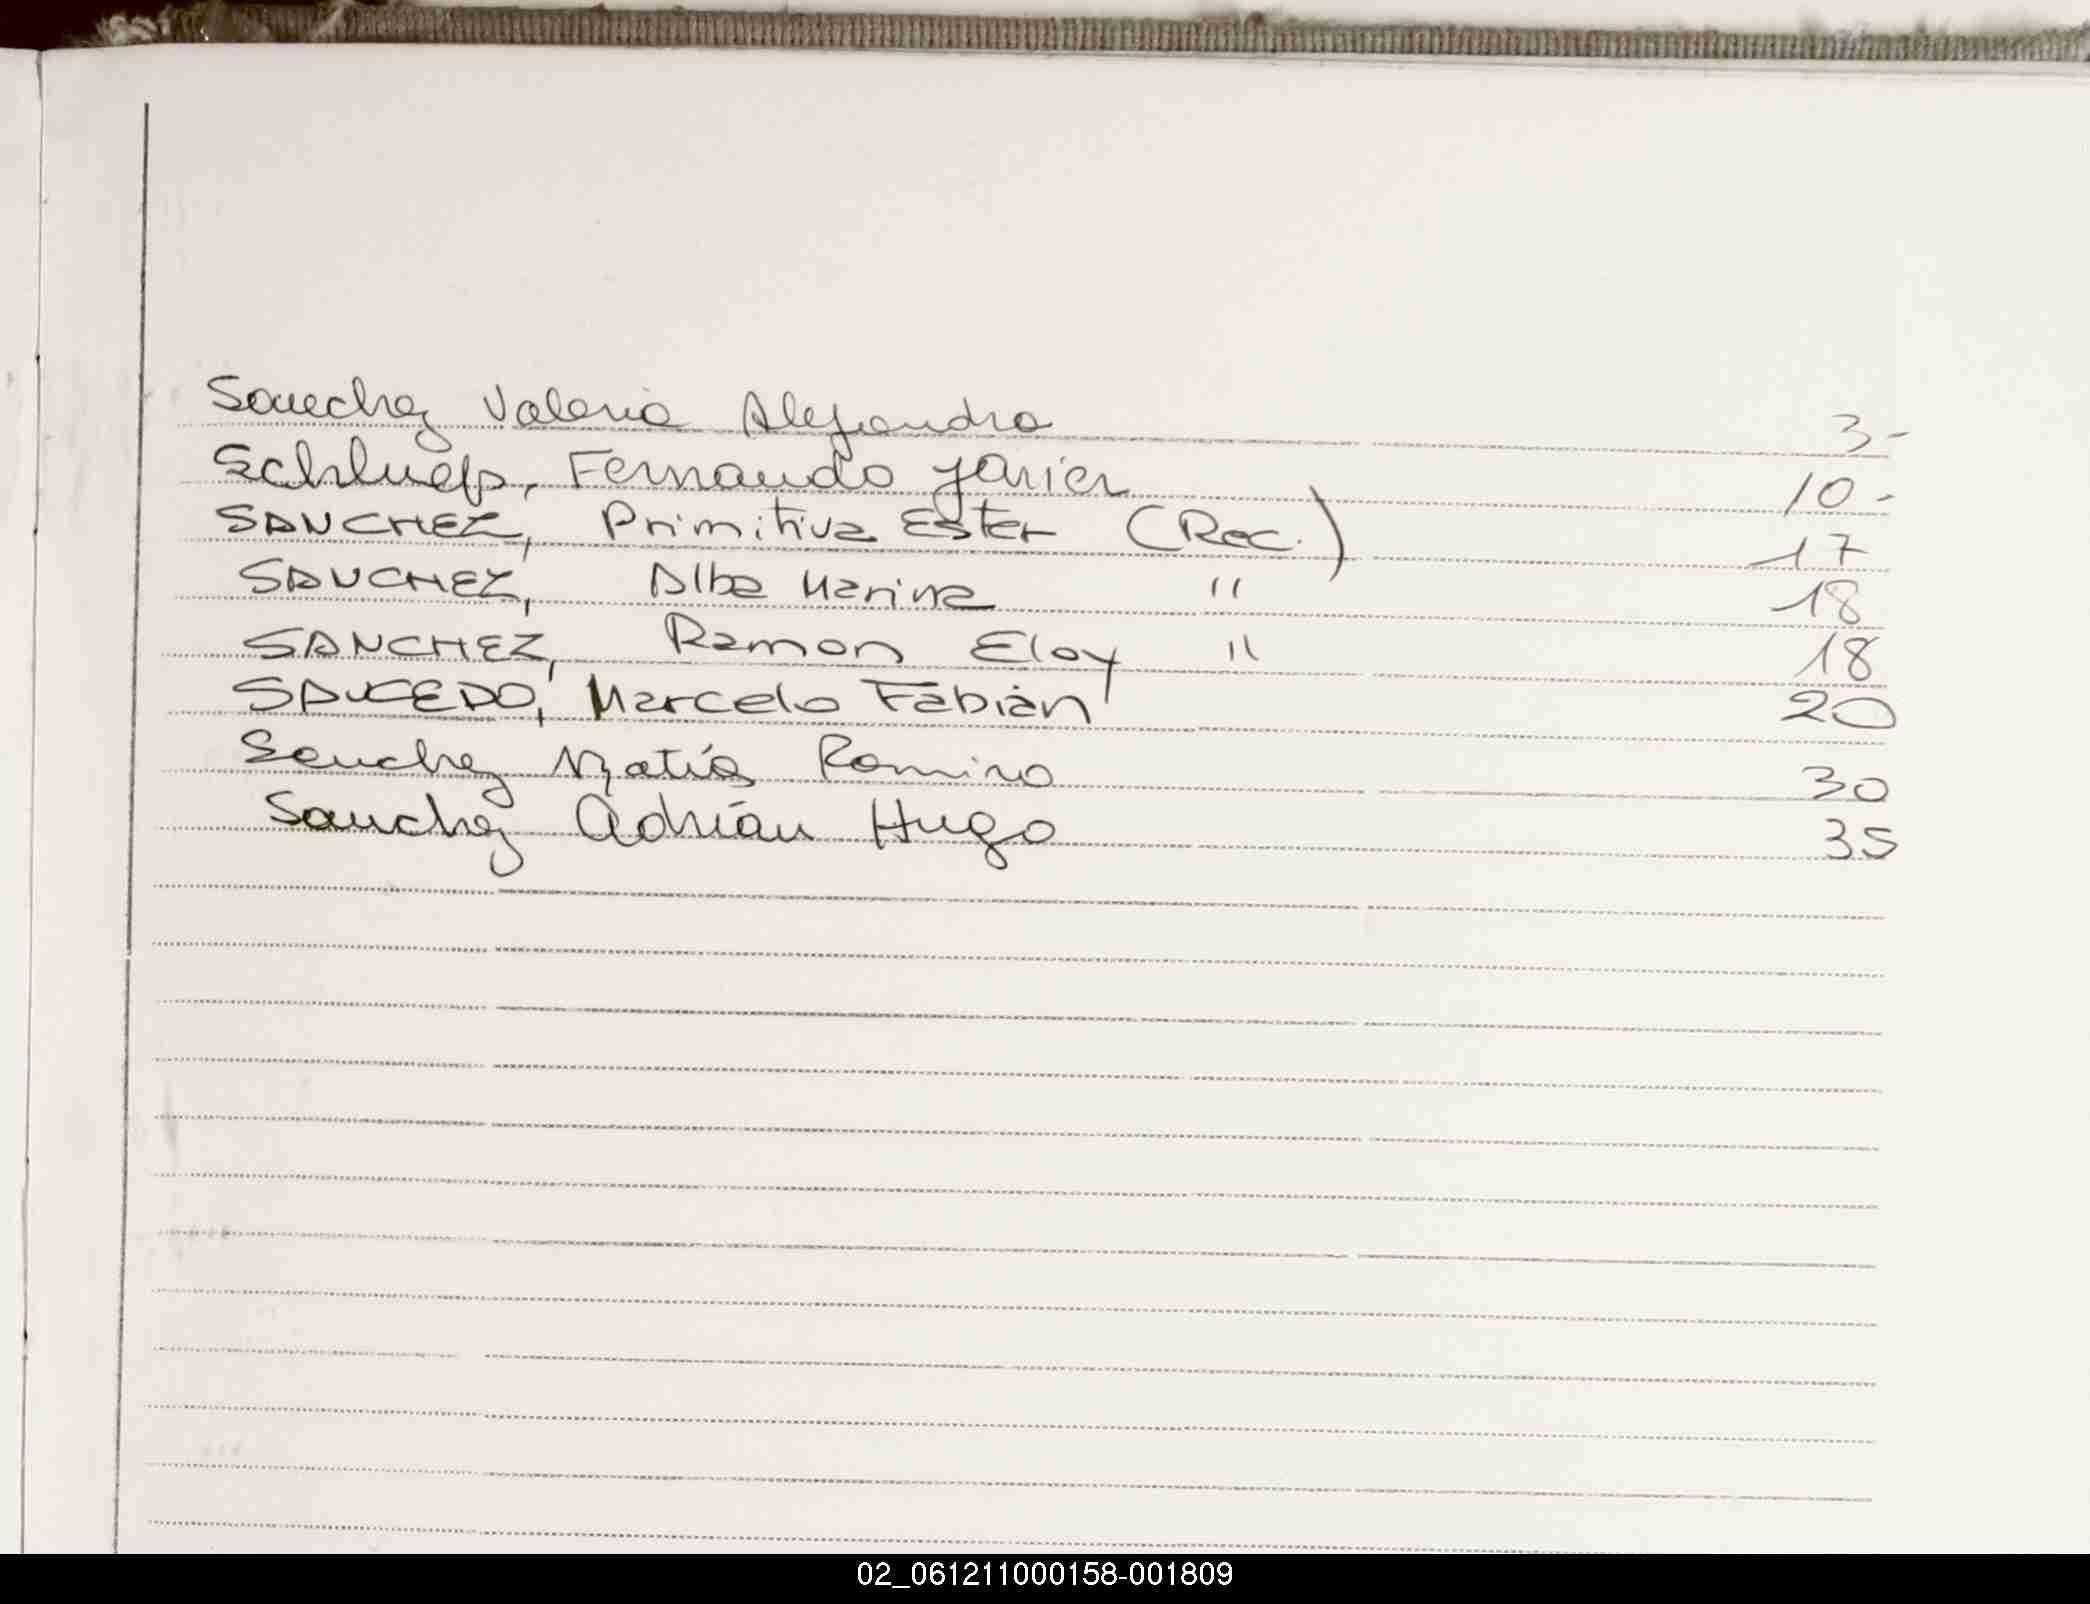 Sanchez Valeria Alejandra 3-
Schluep, Fernando Javier 10-
SANCHEZ, Primitiva Ester (Rec.) 17
SANCHEZ, Alba Marina " 18
SANCHEZ, Ramon Eloy " 18
SAUCEDO, Marcelo Fabián 20
Sanchez Matías Ramiro 30
Sanchez Adrián Hugo 35
02_061211000158-001809